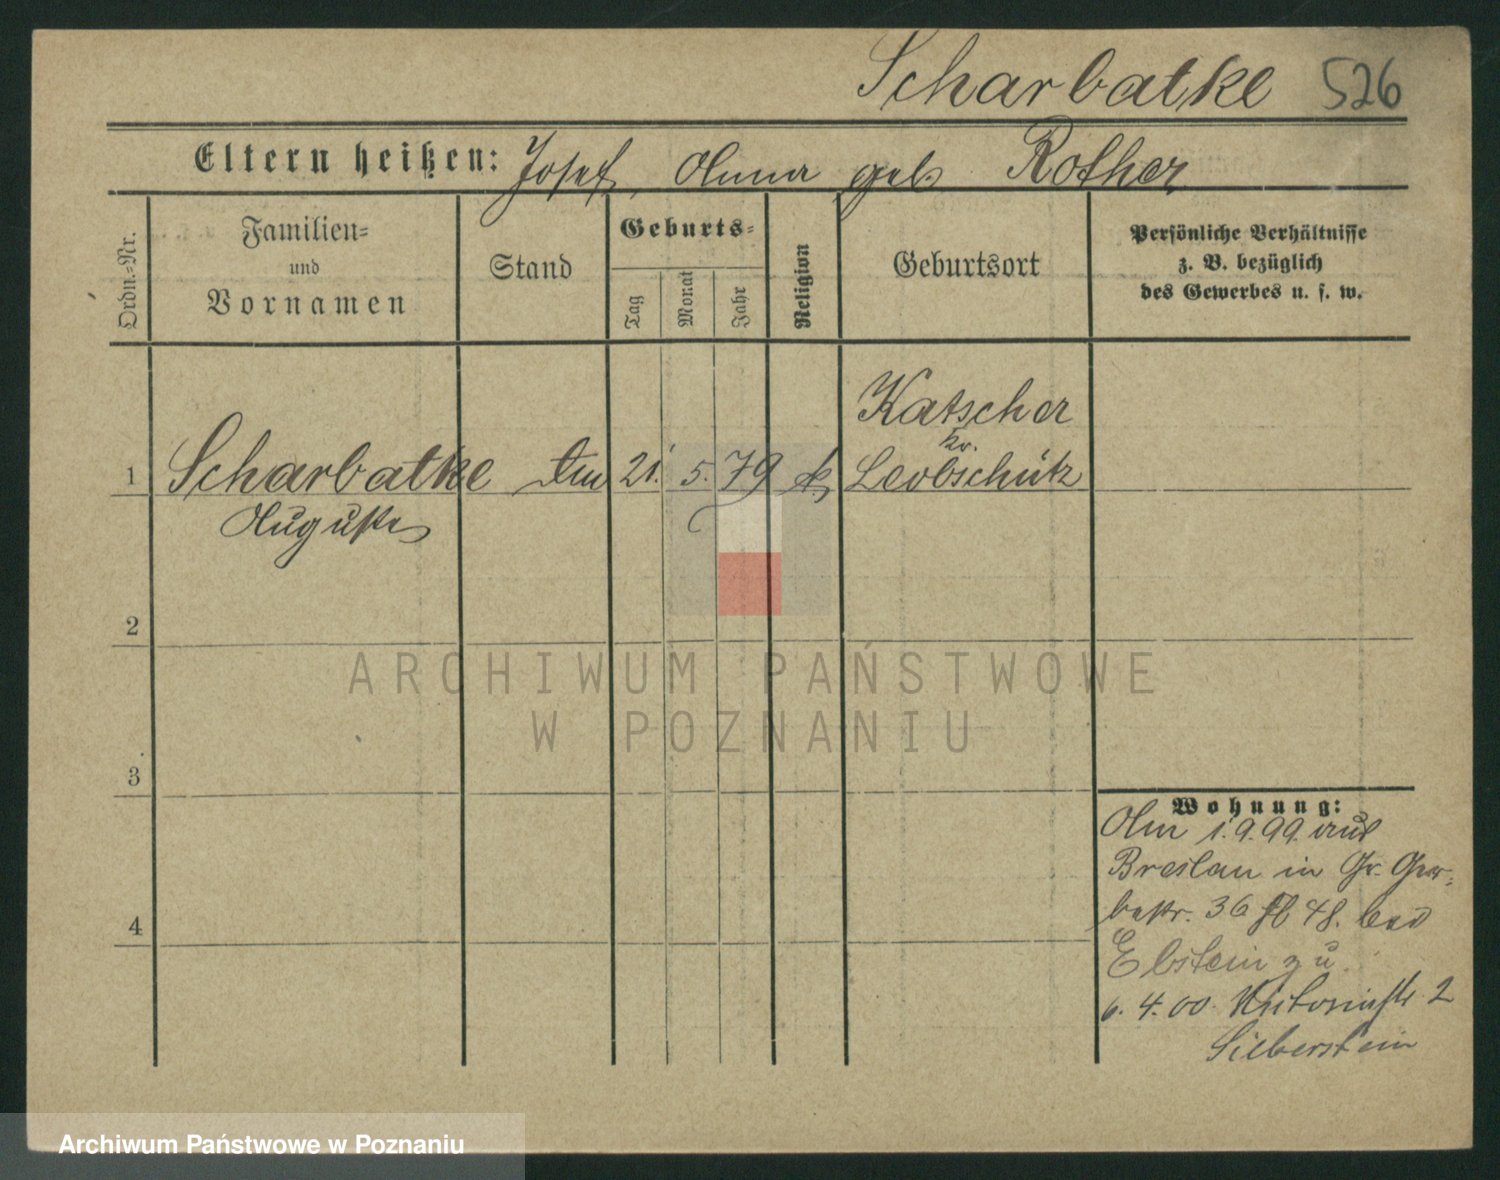 Scharbatke 526
Eltern heißen: Josef, Anna geb Rother
Ordn.-Nr.
Familien-
und
Vornamen
Stand
Geburts-
Tag
Monat
Jahr
Religion
Geburtsort
Persönliche Verhältnisse
z. B. bezüglich
des Gewerbes u. s. w.
Katscher
Kr.
1 Scharbatke 21. 5. 79 k. Leobschütz
Auguste
2
3
4
Wohnung:
Am 1.9.99. aus
Breslau in Gr. Ger-
berstr. 36 bei
Ebstein zu
6. 4. 00. Viktoriastr 2
Silberstein
ARCHIWUM PAŃSTWOWE
W POZNANIU
Archiwum Państwowe w Poznaniu